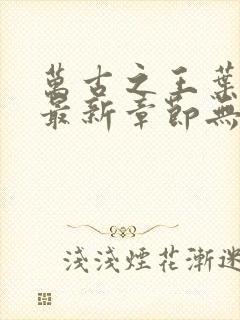 萬古之王葉
最新章節無
淺淺煙花漸迷